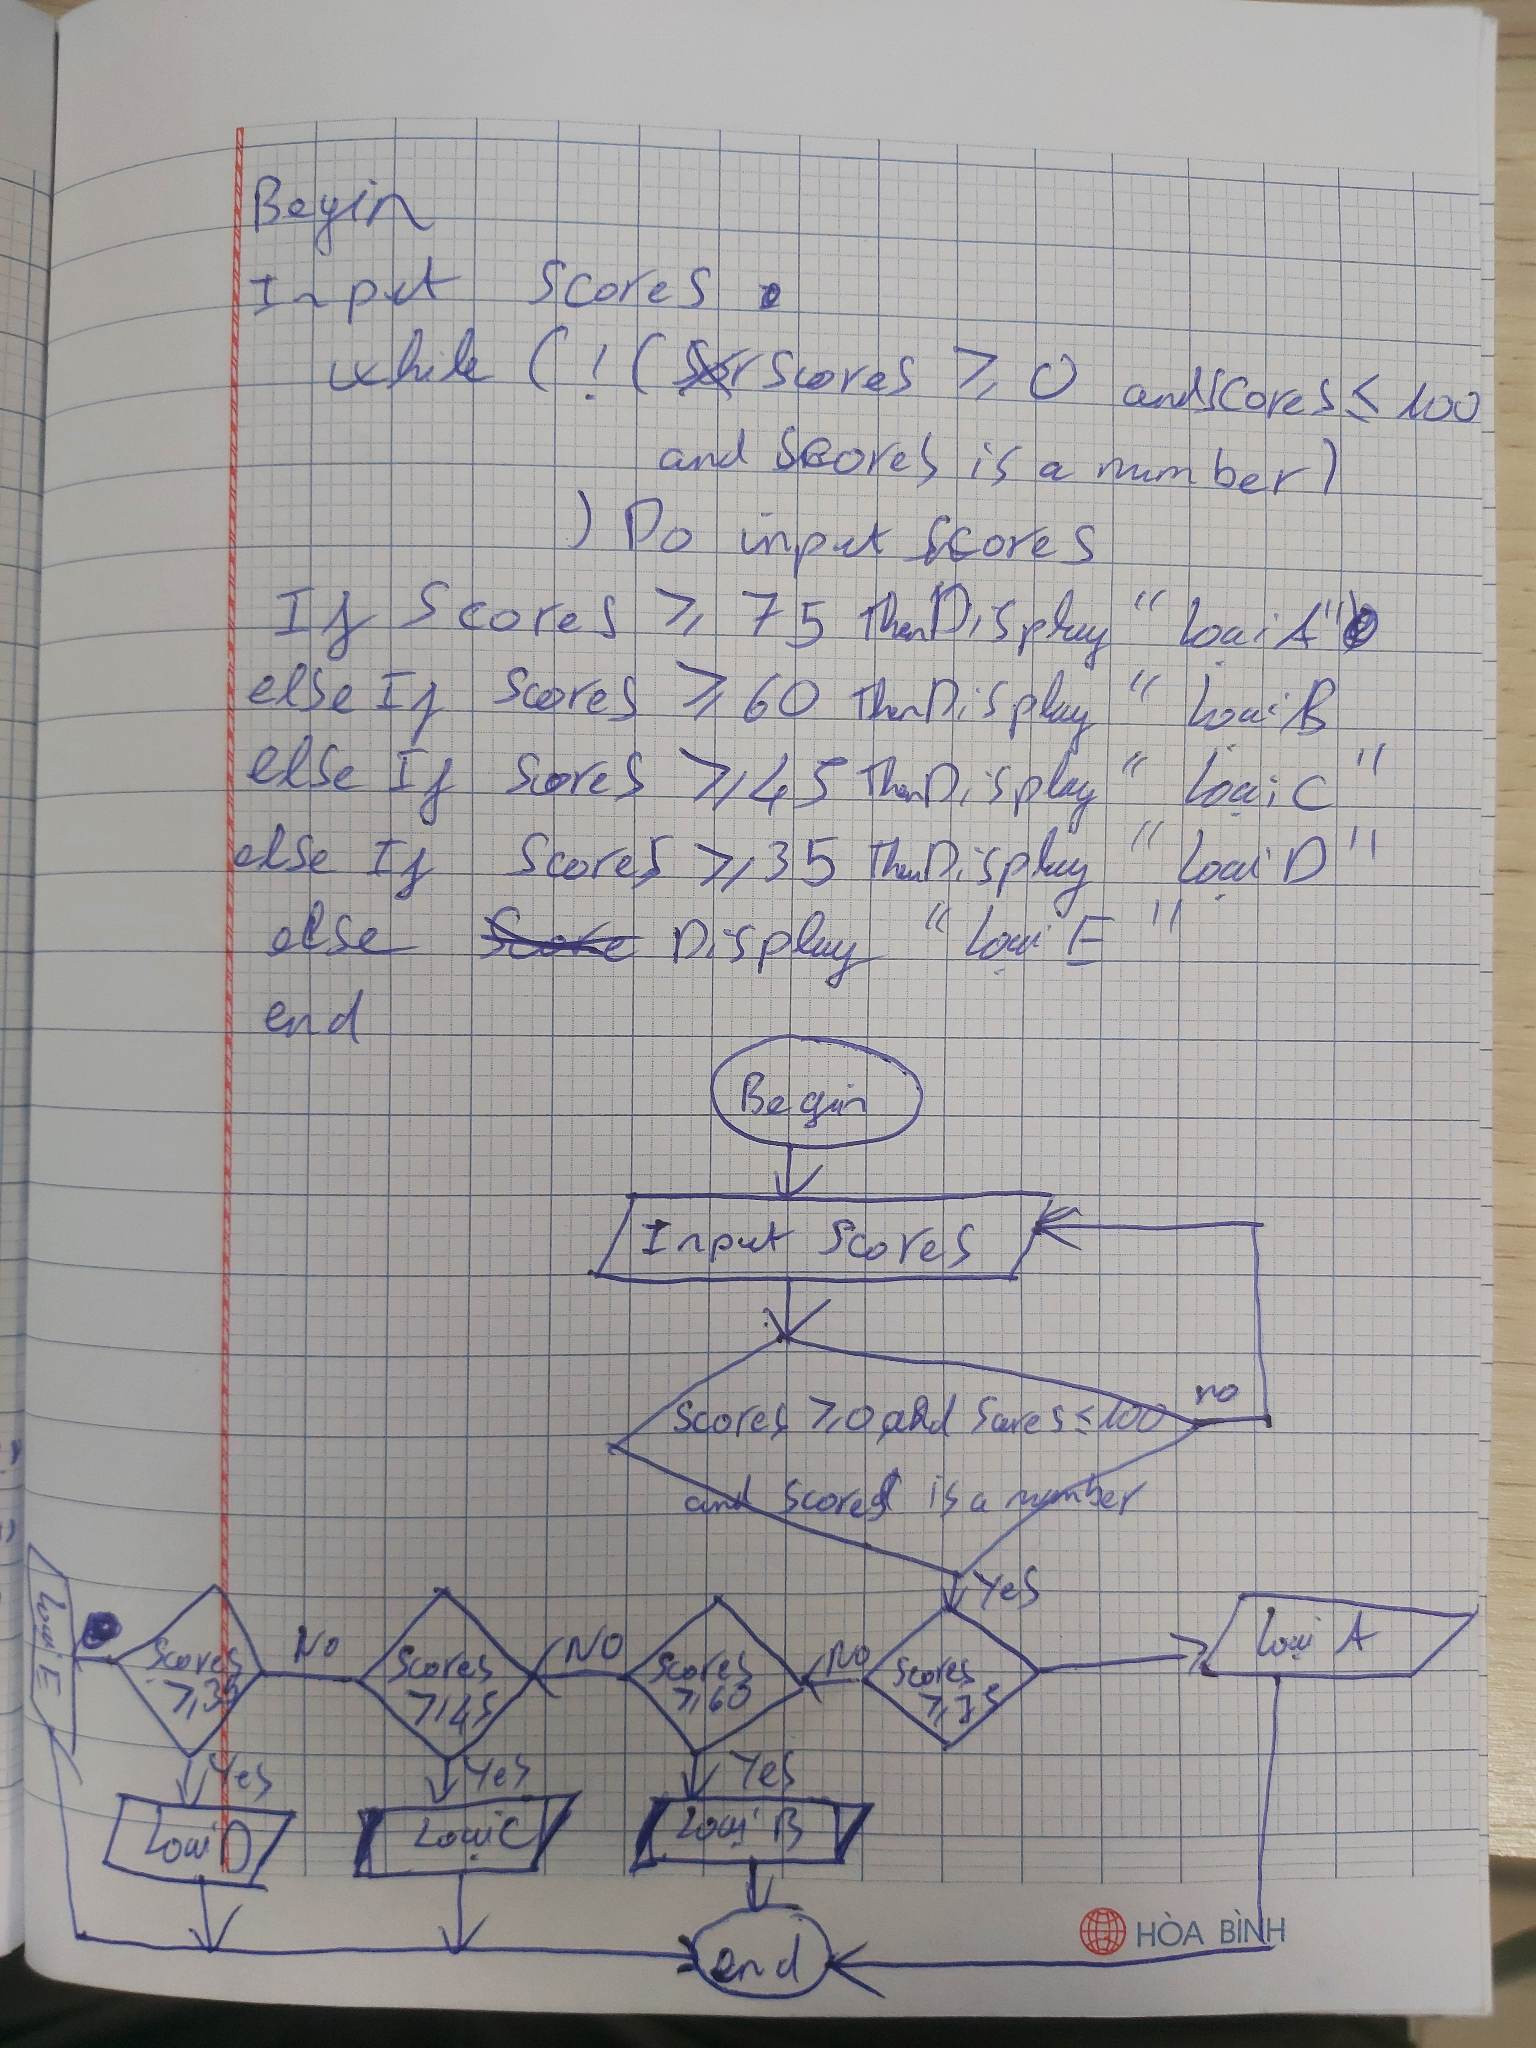 Begin
Input Scores
while ( ! ( Scores ⩾ 0 and Scores ≤ 100
and Scores is a number)
) Do input Scores
If Scores ⩾ 75 Then Display " Loại A"
else If Scores ⩾ 60 Then Display " Loại B
else If Scores ⩾ 45 Then Display " Loại C "
else If Scores ⩾ 35 Then Display " Loại D "
else Display " Loại E "
end
Begin
Input Scores
Scores ⩾ 0 and Scores ≤ 100
no
and Scores is a number
Yes
Loại E
Scores
⩾ 35
No
Scores
⩾ 45
NO
Scores
⩾ 60
NO
Scores
⩾ 75
Loại A
Yes
Yes
Yes
Loại D
Loại C
Loại B
end
HÒA BÌNH